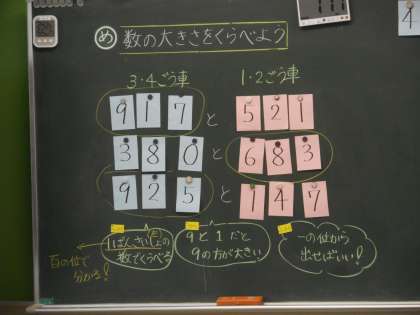 め 数の大きさをくらべよう
3・4ごう車 1・2ごう車
917 と 521
380 と 683
925 と 147
百の位で
分かる!
1ばんさいしょの
数でくらべる
9と1だと
9の方が大きい
一の位から
出せばいい!